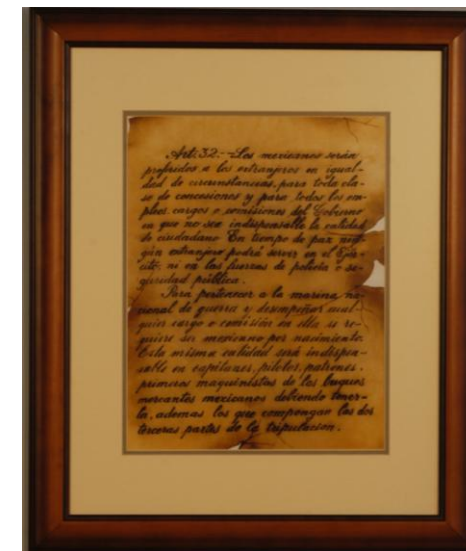 Art. 32.- Los mexicanos serán
preferidos a los extranjeros en igual-
dad de circunstancias, para toda cla-
se de concesiones y para todos los em-
pleos, cargos o comisiones del Gobierno
en que no sea indispensable la calidad
de ciudadano. En tiempo de paz nin-
gún extranjero podrá servir en el Ejér-
cito, ni en las fuerzas de policía o se-
guridad pública.
Para pertenecer a la marina na-
cional de guerra y desempeñar cual-
quier cargo o comisión en ella, se re-
quiere ser mexicano por nacimiento.
Esta misma calidad será indispen-
sable en capitanes, pilotos, patrones,
primeros maquinistas de los buques
mercantes mexicanos debiendo tener-
la, ademas los que compongan las dos
terceras partes de la tripulación.